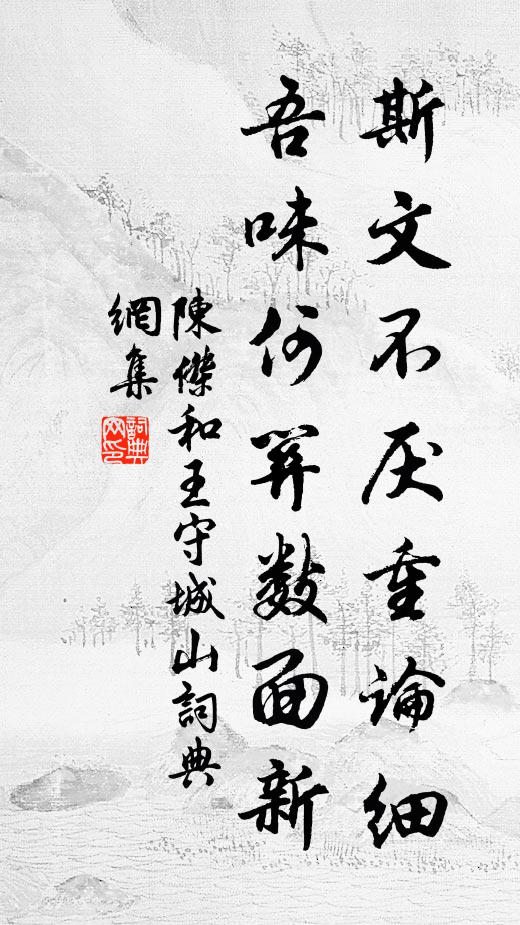 斯文不厌重論细
吾味何算數面新
陳傑和王守城山詞典
網集
詞典
网印